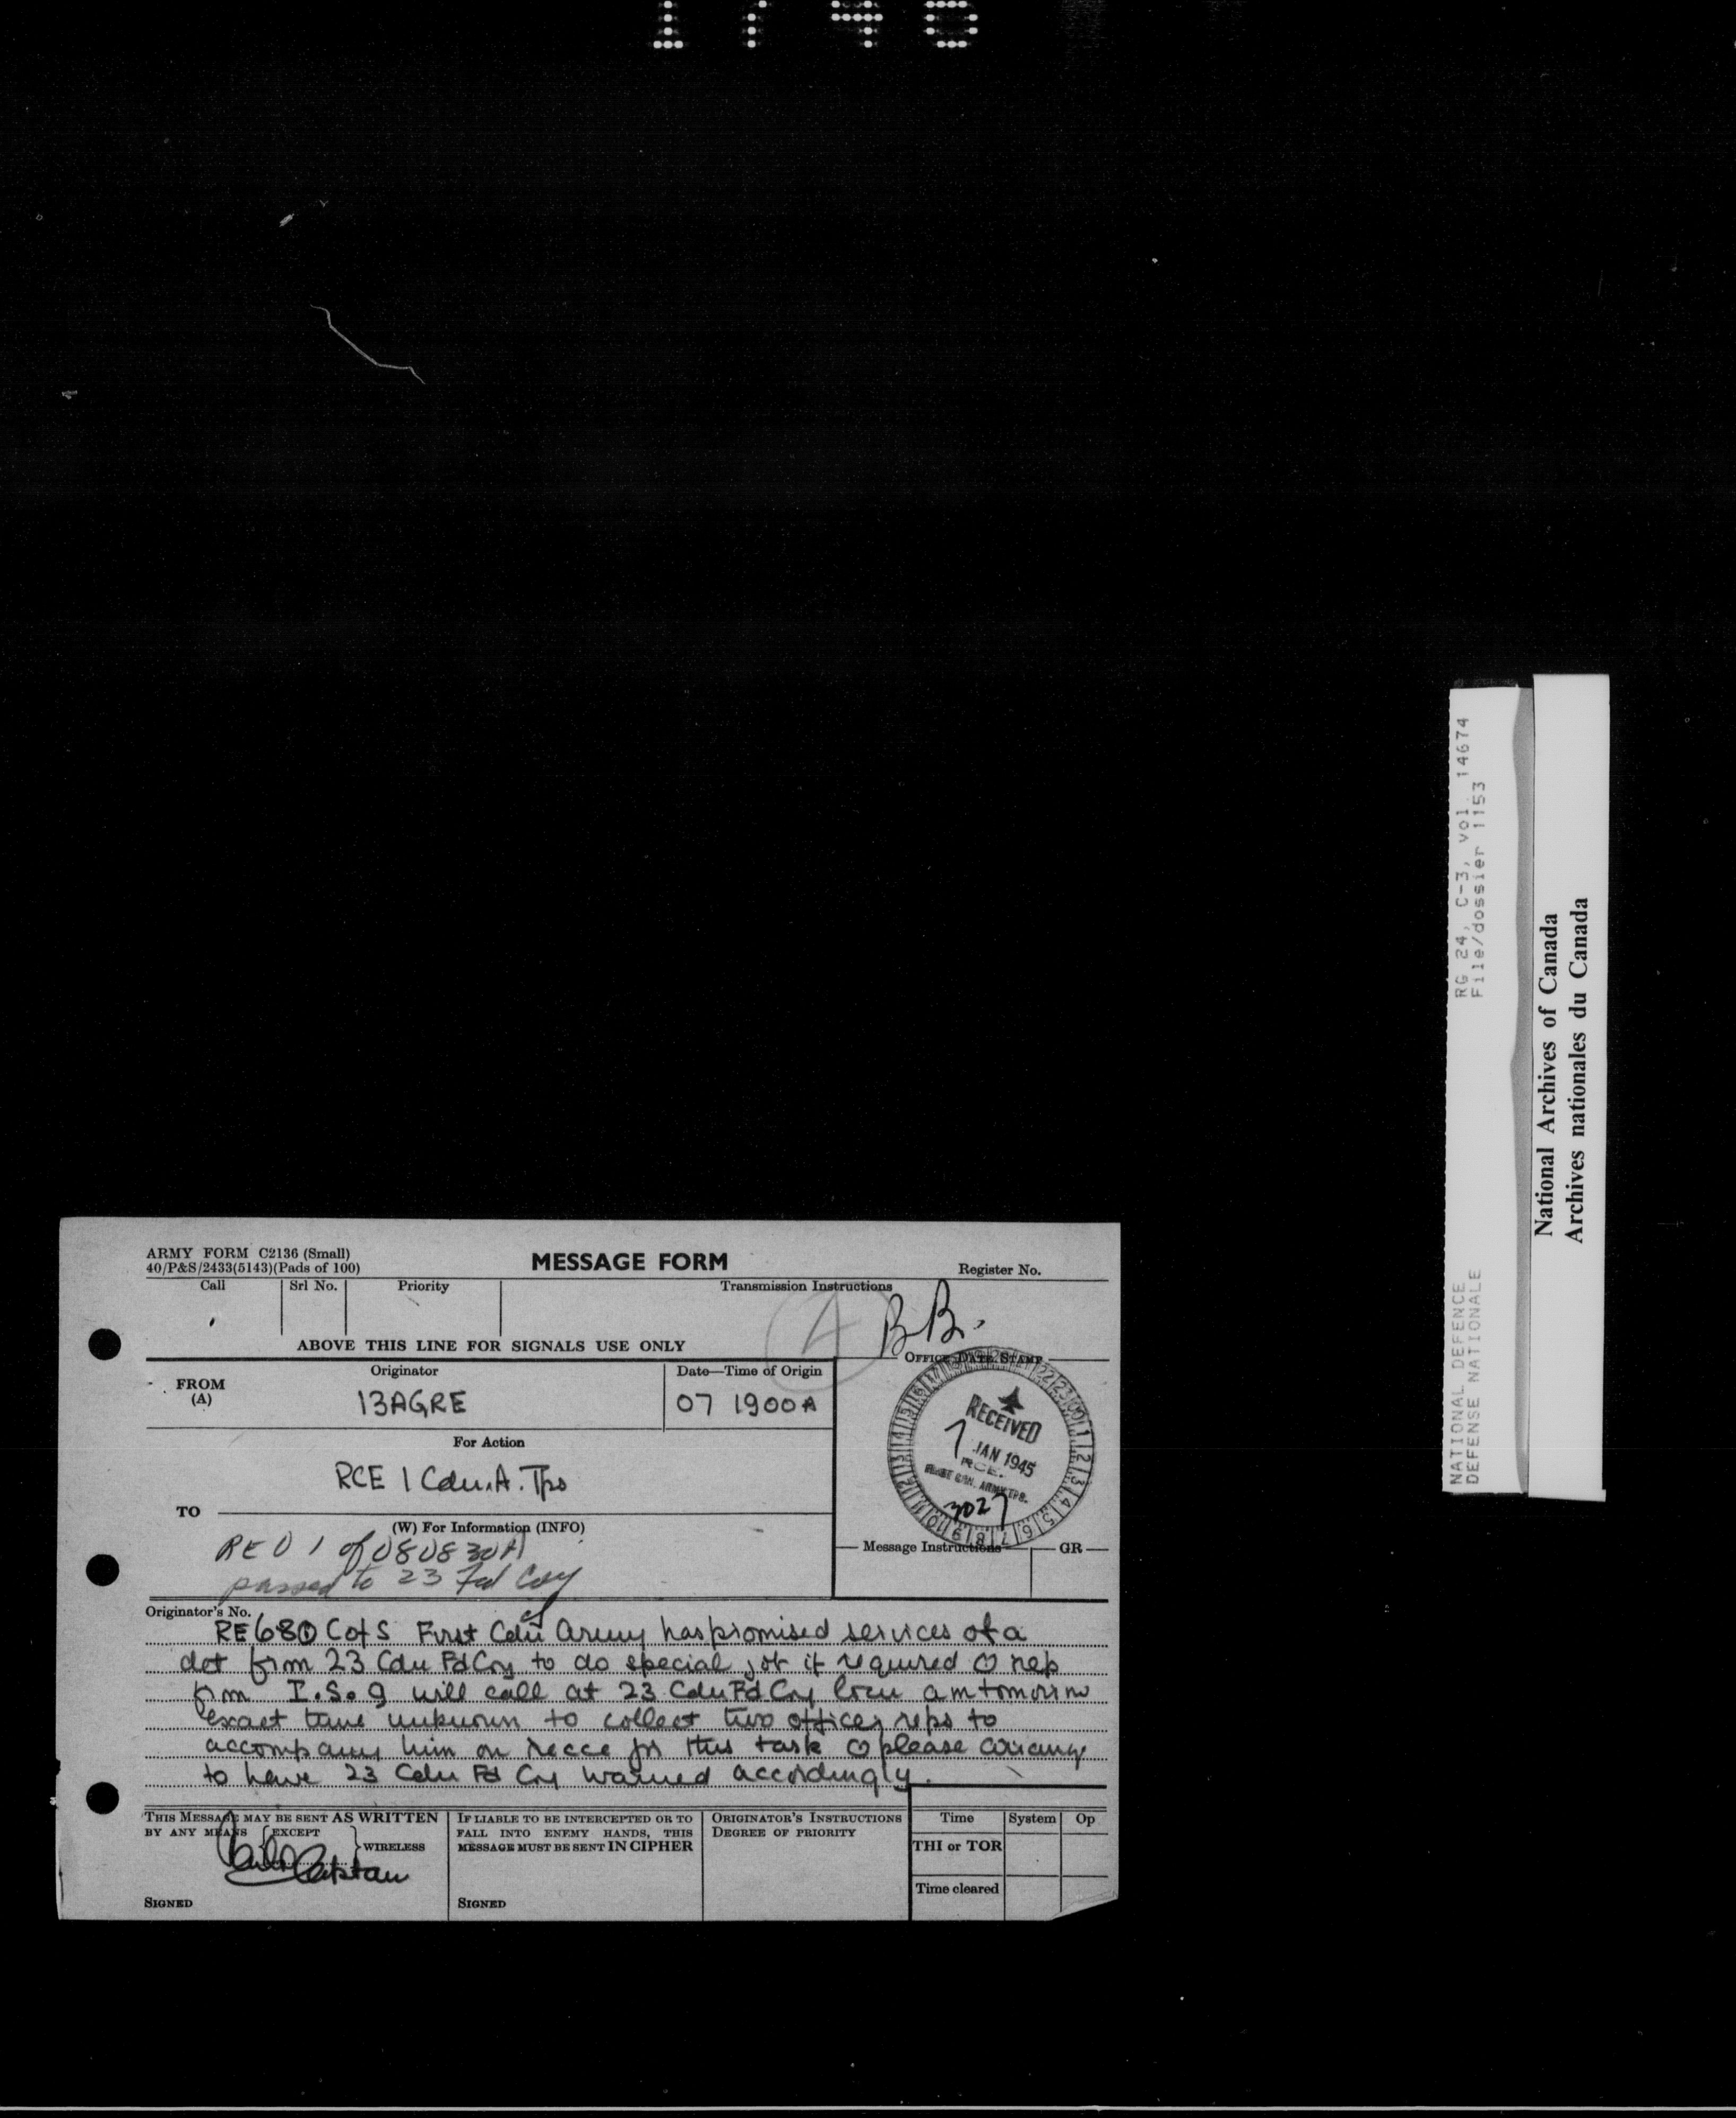 1740
ARMY FORM C2136 (Small)
40/P&S/2433(5143)(Pads of 100)
MESSAGE FORM
Register No.
Call
Srl No.
Priority
Transmission Instructions
4
BB.
ABOVE THIS LINE FOR SIGNALS USE ONLY
FROM
(A)
Originator
13AGRE
Date—Time of Origin
07 1900A
OFFICE DATE STAMP
RECEIVED
7 JAN 1945
R.C.E.
FIRST CAN. ARMY TPS.
3027
For Action
RCE 1 Cdn. A. Tps
TO
(W) For Information (INFO)
RE 01 of 080830A
passed to 23 Fd Coy
Message Instructions
GR
Originator's No.
RE 680 C of S First Cdn Army has promised services of a
det from 23 Cdn Fd Coy to do special job if required O rep
from I.S.9 will call at 23 Cdn Fd Coy locn am tomorrow
exact time unknown to collect two officer reps to
accompany him on recce for this task O please arrange
to have 23 Cdn Fd Coy warned accordingly.
THIS MESSAGE MAY BE SENT AS WRITTEN
BY ANY MEANS {EXCEPT } WIRELESS
Captain
SIGNED
IF LIABLE TO BE INTERCEPTED OR TO
FALL INTO ENEMY HANDS, THIS
MESSAGE MUST BE SENT IN CIPHER
SIGNED
ORIGINATOR'S INSTRUCTIONS
DEGREE OF PRIORITY
Time
System
Op
THI or TOR
Time cleared
RG 24, C-3, vol. 14674
File/dossier 1153
NATIONAL DEFENCE
DEFENSE NATIONALE
National Archives of Canada
Archives nationales du Canada